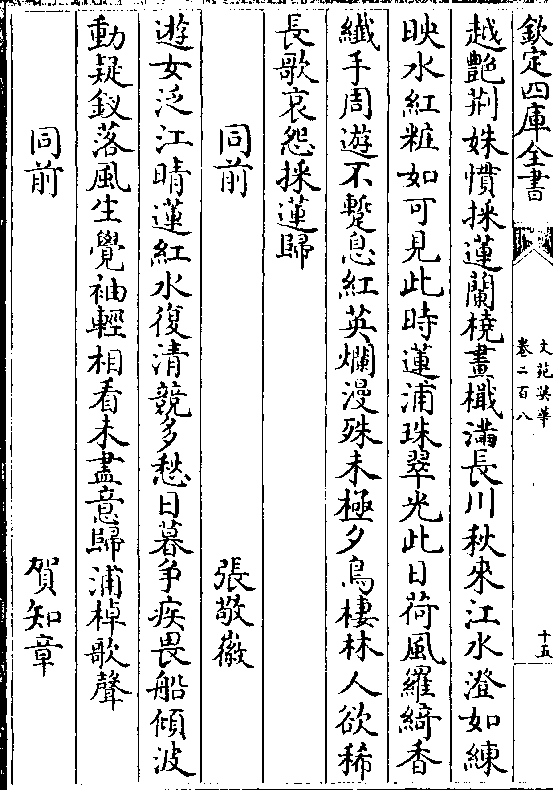 欽定四庫全書
文苑英華
卷二百八
十五
越艷荆姝慣採蓮蘭橈畫檝滿長川秋來江水澄如練
映水紅粧如可見此時蓮浦珠翠光此日荷風羅綺香
纖手周遊不蹔息紅英爛漫殊未極夕鳥棲林人欲稀
長歌哀怨採蓮歸
同前 張敬徽
遊女泛江晴蓮紅水復清競多愁日暮爭疾畏船傾波
動疑釵落風生覺袖輕相看未盡意歸浦棹歌聲
同前 賀知章